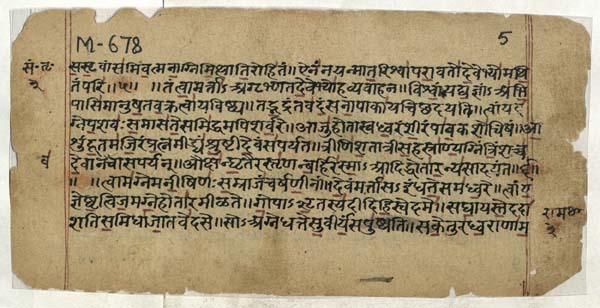 M-678
5
ससृवांसमिवत्मनाग्निमित्थातिरोहितं॥ऐनंनयन्मातरिश्वापरावतोदेवेभ्योमथि
तंपरि॥५॥तंत्वामर्ताअगृभ्णतदेवेभ्योहव्यवाहन॥विश्वान्यद्यज्ञाँअभि
पासिमानुषतवक्रत्वायविष्ठ्य॥तद्भद्रंतवदंसनापाकायचिच्छदयति॥त्वांयद
ग्नेपशवःसमासतेसमिद्धमपिशर्वरे॥आजुहोतास्वध्वरंशीरंपावकशोचिषं॥आ
शुंदूतमजिरंप्रत्नमीड्यंश्रुष्टीदेवंसपर्यत॥त्रीणिशतात्रीसहस्राण्यग्निंत्रिंशच्च
देवानवचासपर्यन्॥औक्षन्घृतैरस्तृणन्बर्हिरस्माआदिद्धोतारंन्यसादयंत॥
त्वामग्नेमनीषिणःसम्राजंचर्षणीनां॥देवंमर्तासइंधतेसमध्वरे॥त्वांय
ज्ञेष्वृत्विजमग्नेहोतारमीळते॥गोपाऋतस्यदीदिहिस्वेदमे॥सघायस्तेददा
शतिसमिधाजातवेदसे॥सोअग्नेधत्तेसुवीर्यंसपुष्यति॥सकेतुरध्वराणाम